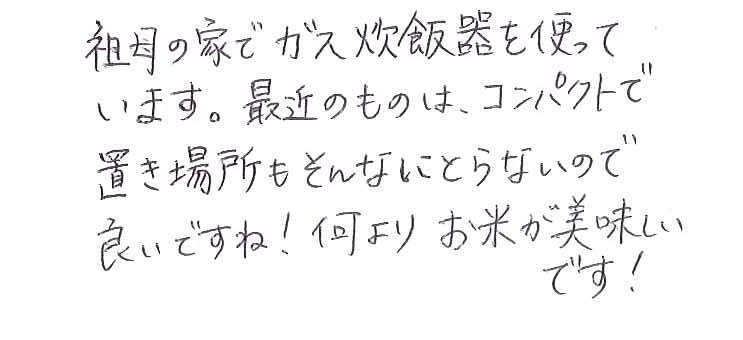 祖母の家でガス炊飯器を使って
います。最近のものは、コンパクトで
置き場所もそんなにとらないので
良いですね!何よりお米が美味しい
です!